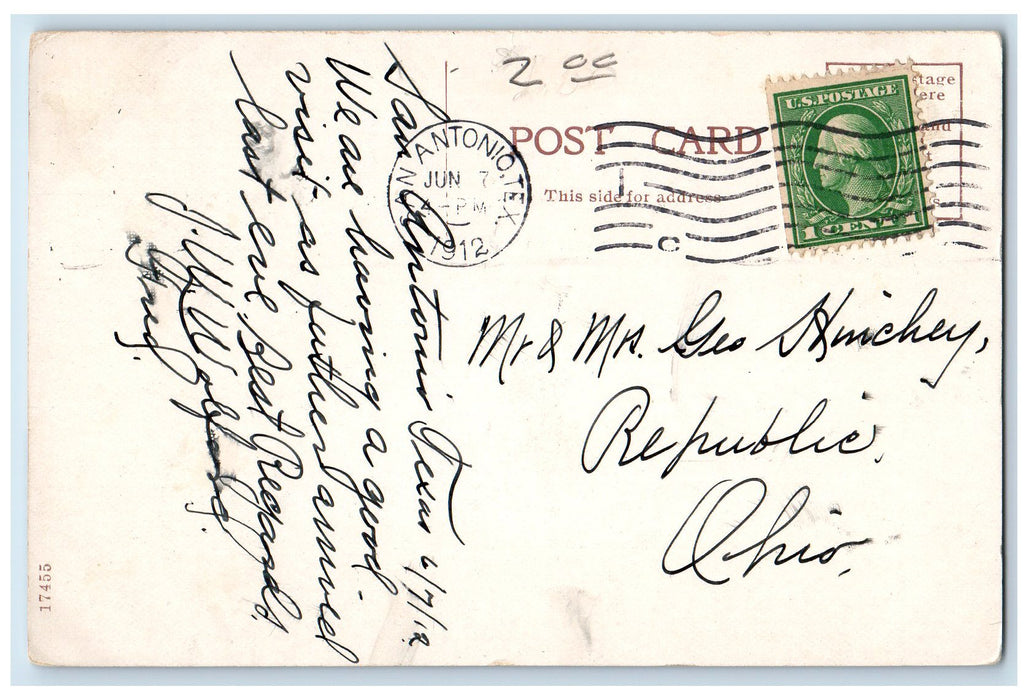 2 00
POST CARD
This side for address
tage
ere
U.S.POSTAGE
1 CENT 1
N ANTONIO, TEX
JUN 7
PM
1912
San Antonio Texas 6/7/12
We are having a good
visit as further arrived
last eve. Best Regards
J. W. Wolfang.
Mr & Mrs. Geo Hinchey,
Republic,
Ohio,
17455